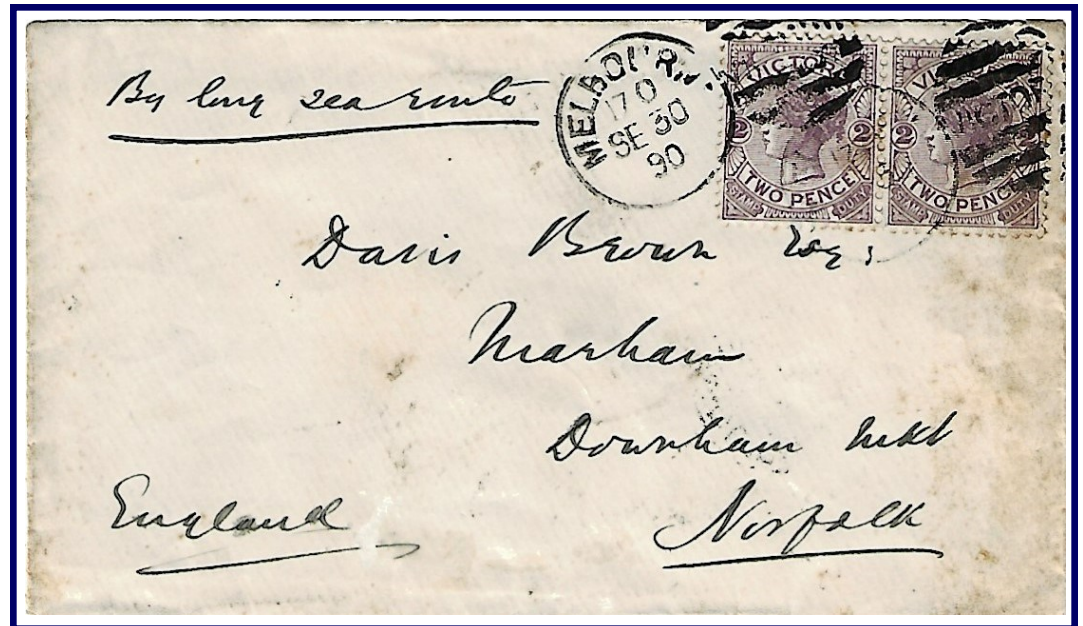 By long sea route
MELBOURN
17 O
SE 30
90
VICTOR
2 2
TWO PENCE
STAMP DUTY
VI
2
TWO PENCE
STAMP DUTY
Davis Brown Esq:
Marham
Downham Mkt
Norfolk
England